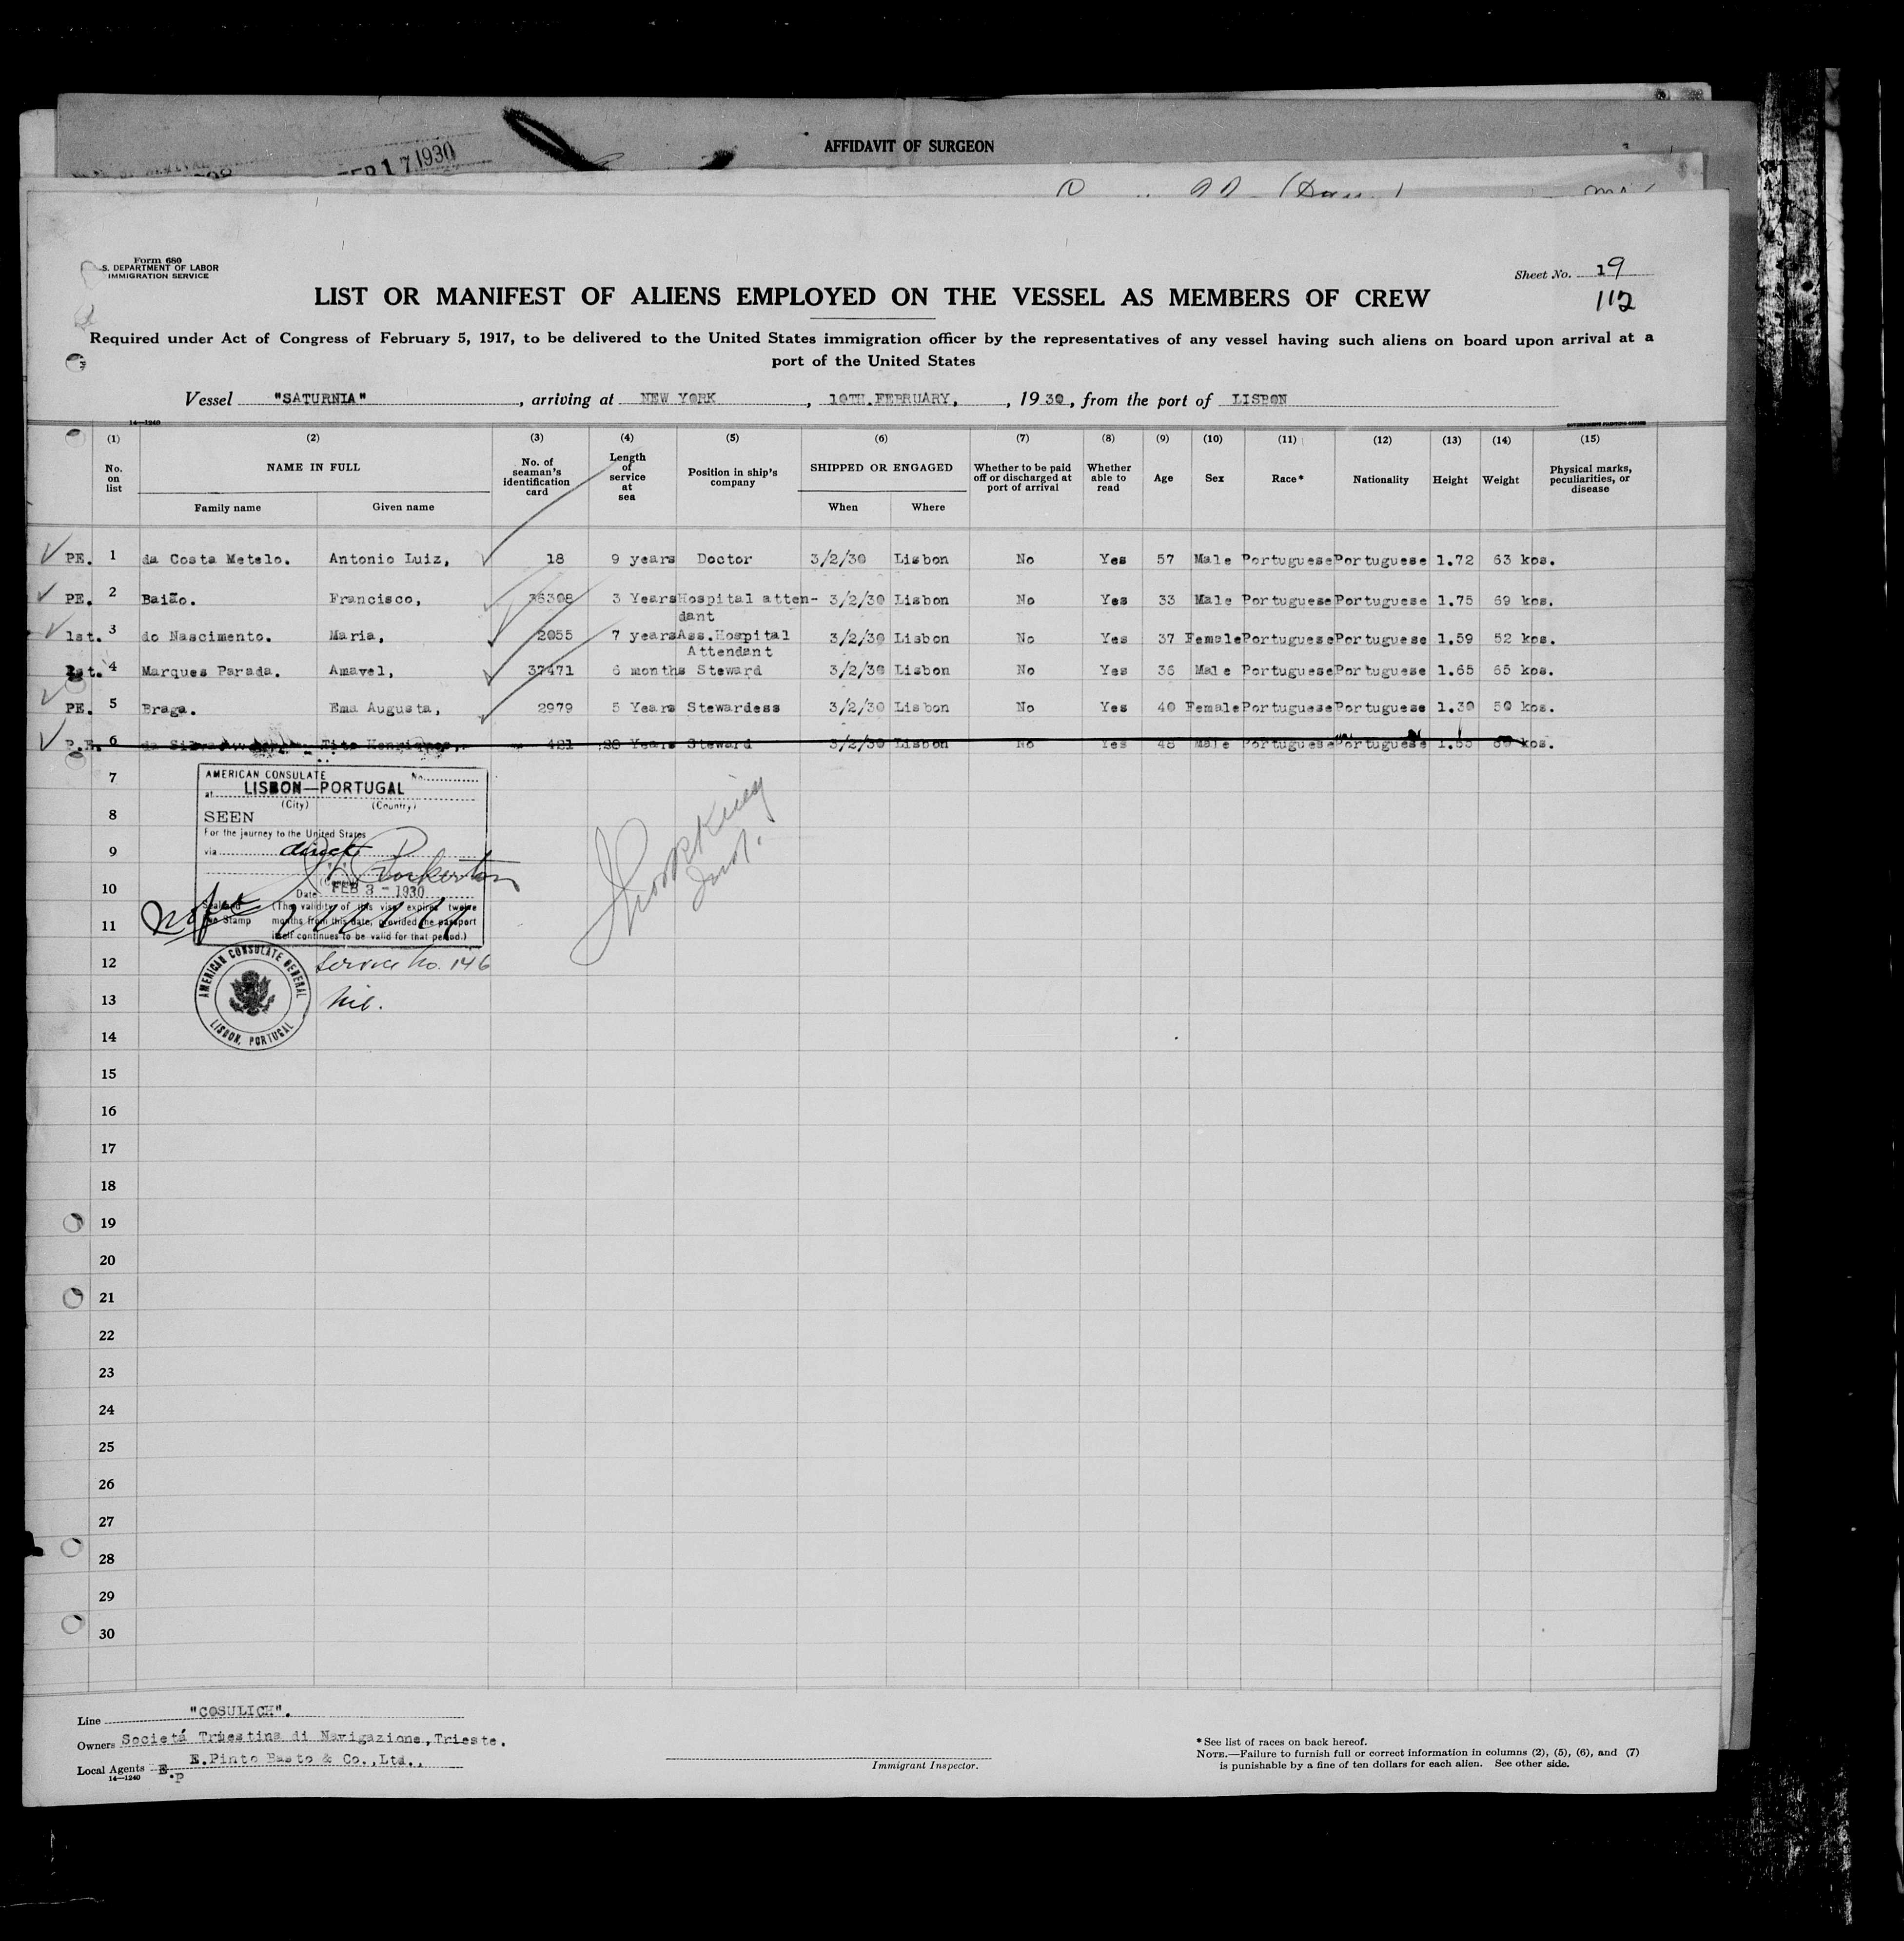 AFFIDAVIT OF SURGEON
FEB 17 1930
Form 680
S. DEPARTMENT OF LABOR
IMMIGRATION SERVICE
Sheet No. 19
112
LIST OR MANIFEST OF ALIENS EMPLOYED ON THE VESSEL AS MEMBERS OF CREW
Required under Act of Congress of February 5, 1917, to be delivered to the United States immigration officer by the representatives of any vessel having such aliens on board upon arrival at a
port of the United States
Vessel "SATURNIA", arriving at NEW YORK, 10TH.FEBRUARY, , 1930, from the port of LISBON
14—1240
GOVERNMENT PRINTING OFFICE
(1) (2) (3) (4) (5) (6) (7) (8) (9) (10) (11) (12) (13) (14) (15)
No. on list NAME IN FULL No. of seaman's identification card Length of service at sea Position in ship's company SHIPPED OR ENGAGED Whether to be paid off or discharged at port of arrival Whether able to read Age Sex Race* Nationality Height Weight Physical marks, peculiarities, or disease
Family name Given name When Where
PE. 1 da Costa Metelo. Antonio Luiz, 18 9 years Doctor 3/2/30 Lisbon No Yes 57 Male Portuguese Portuguese 1.72 63 kos.
PE. 2 Baião. Francisco, 36308 3 Years Hospital atten- 3/2/30 Lisbon No Yes 33 Male Portuguese Portuguese 1.75 69 kos.
dant
1st. 3 do Nascimento. Maria, 2055 7 years Ass.Hospital 3/2/30 Lisbon No Yes 37 Female Portuguese Portuguese 1.59 52 kos.
Attendant
1st. 4 Marques Parada. Amavel, 37471 6 months Steward 3/2/30 Lisbon No Yes 36 Male Portuguese Portuguese 1.65 65 kos.
PE. 5 Braga. Ema Augusta, 2979 5 Years Stewardess 3/2/30 Lisbon No Yes 40 Female Portuguese Portuguese 1.30 50 kos.
P.E. 6 da Silva Tito Henriques, 481 28 Years Steward 3/2/30 Lisbon No Yes 48 Male Portuguese Portuguese 1.65 60 kos.
7
8
9
10
11
12
13
14
15
16
17
18
19
20
21
22
23
24
25
26
27
28
29
30
AMERICAN CONSULATE No.
at LISBON—PORTUGAL
(City) (Country)
SEEN
For the journey to the United States
via direct
Date FEB 3 - 1930
Seal and (The validity of this visa expires twelve
Fee Stamp months from this date, provided the passport
itself continues to be valid for that period.)
Service No. 146
Nil.
AMERICAN CONSULATE GENERAL
LISBON, PORTUGAL
Line "COSULICH".
Owners Societá Triestina di Navigazione,Trieste.
Local Agents E.Pinto Basto & Co.,Ltd.,
14—1240
Immigrant Inspector.
* See list of races on back hereof.
NOTE.—Failure to furnish full or correct information in columns (2), (5), (6), and (7)
is punishable by a fine of ten dollars for each alien. See other side.